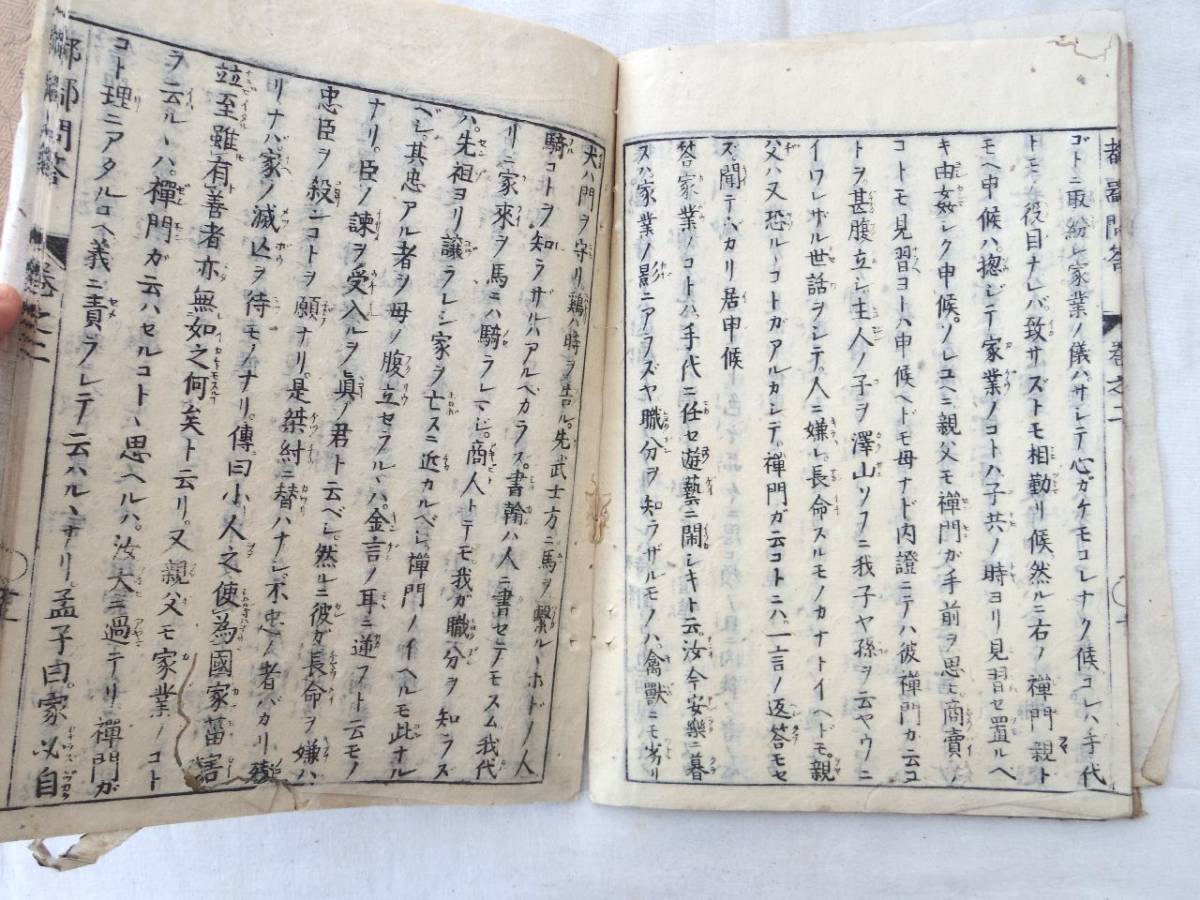 都鄙問答 巻之二
ゴトニ取紛レ家業ノ儀ハサレテ心ガケモコレナク候コレハ手代
トモノ役目ナレバ致サズトモ相勤リ候然ルニ右ノ禪門親ト
モヘ申候ハ揔ジテ家業ノコトハ子共ノ時ヨリ見習セ置ルヘ
キ由姦シク申候。ソレユヘニ親父モ禪門ガ手前ヲ思モ商賣ノ
コトモ見習ヨトハ申候ヘドモ母ナド内證ニテハ彼禪門カ云コ
トヲ甚腹立シ主人ノ子ヲ澤山ソフニ我子ヤ孫ヲ云ヤウニ
イワレザル世話ヲシテ。人ニ嫌レ長命スルモノカナトイヘドモ。親
父ハ又恐ルヽコトガアルカシテ。禪門ガ云コトニハ。一言ノ返答モセ
ズ。聞テバカリ居申候
答家業ノコトハ。手代ニ任セ遊藝ニ閙シキト云汝今安樂ニ暮
スハ家業ノ影ニアラズヤ職分ヲ知ラザルモノハ。禽獸ニモ劣リ
犬ハ門ヲ守リ鶏ハ時ヲ告ル。先武士方ニ馬ヲ繋ルヽホドノ人
騎コトヲ知ラザルハアルベカラス。書翰ハ人ニ書セテモスム我代
リニ家來ヲ馬ニハ騎ラレマジ。商人トテモ我ガ職分ヲ知ラズ
ハ。先祖ヨリ譲ラレシ家ヲ亡スニ近カルベシ。禪門ノイヘルモ此ナル
ベシ其忠アル者ヲ母ノ腹立セラルヽハ。金言ノ耳ニ逆フト云モノ
ナリ。臣ノ諫ヲ受入ルヲ眞ノ君ト云ベシ。然ルニ彼ガ長命ヲ嫌ハ
忠臣ヲ殺ンコトヲ願ナリ。是桀紂ニ替ハナシ不忠ノ者バカリ殘
リナバ家ノ滅亡ヲ待モノナリ。傳曰小人之使為國家菑害
竝至雖有善者亦無如之何矣ト云リ。又親父モ家業ノコト
ヲ云ルヽハ。禪門ガ云ハセルコトヽ思ヘルハ。汝大ニ過テリ禪門ガ
コト理ニアタルユヘ義ニ責ラレテ云ハルヽナリ孟子曰。家必自
鄙問答 巻之二